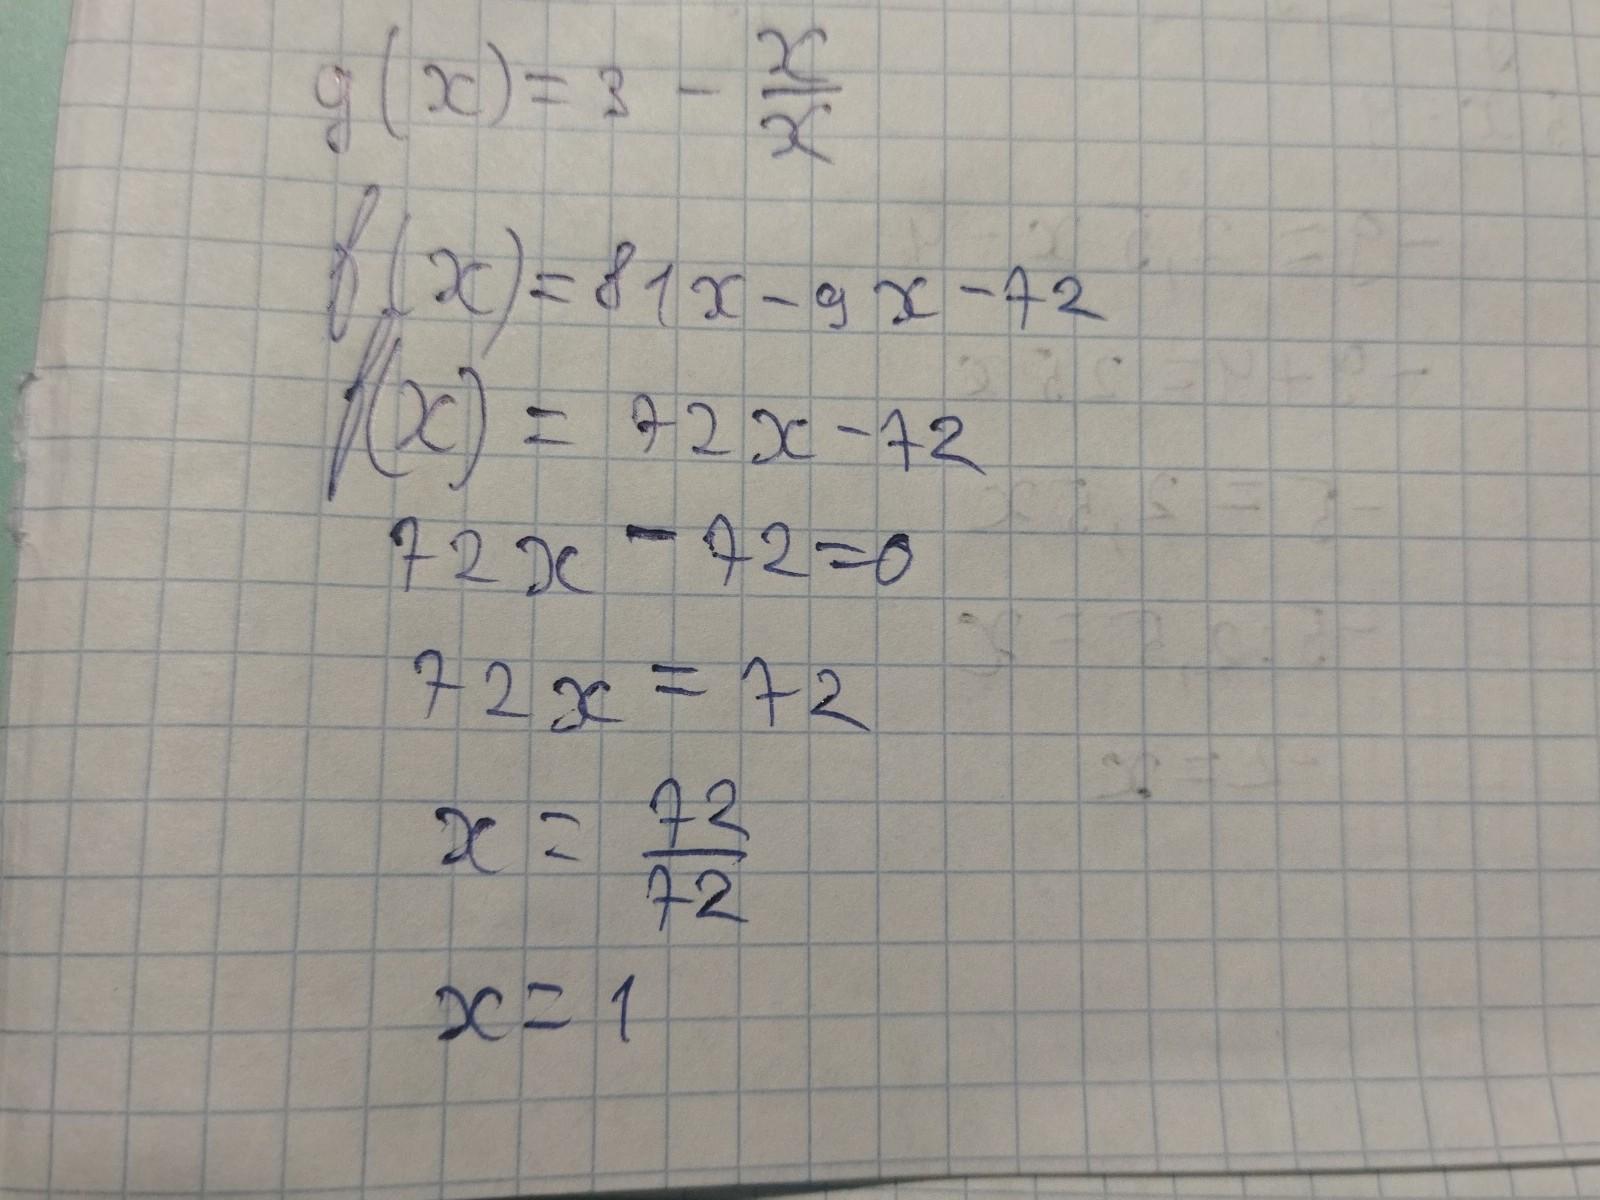 g(x) = 3 - x/x
f(x) = 81x - 9x - 72
f(x) = 72x - 72
72x - 72 = 0
72x = 72
x = 72/72
x = 1